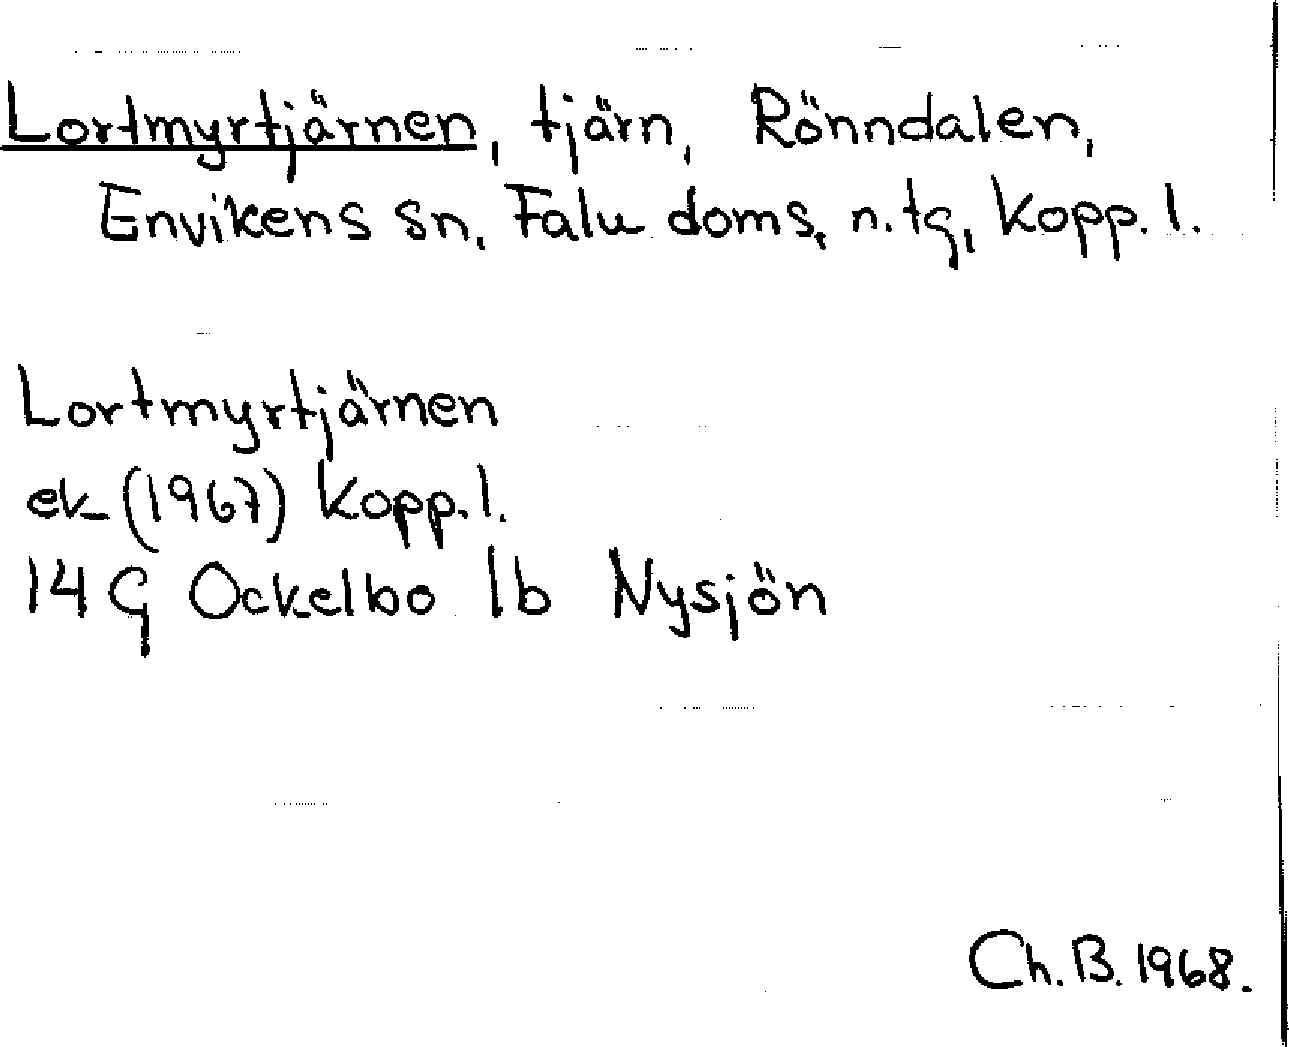 Lortmyrtjärnen, tjärn, Rönndalen,
Envikens sn, Falu doms, n. tg, Kopp. l.
Lortmyrtjärnen
ek (1967) Kopp. l.
14 G Ockelbo 1b Nysjön
Ch. B. 1968.